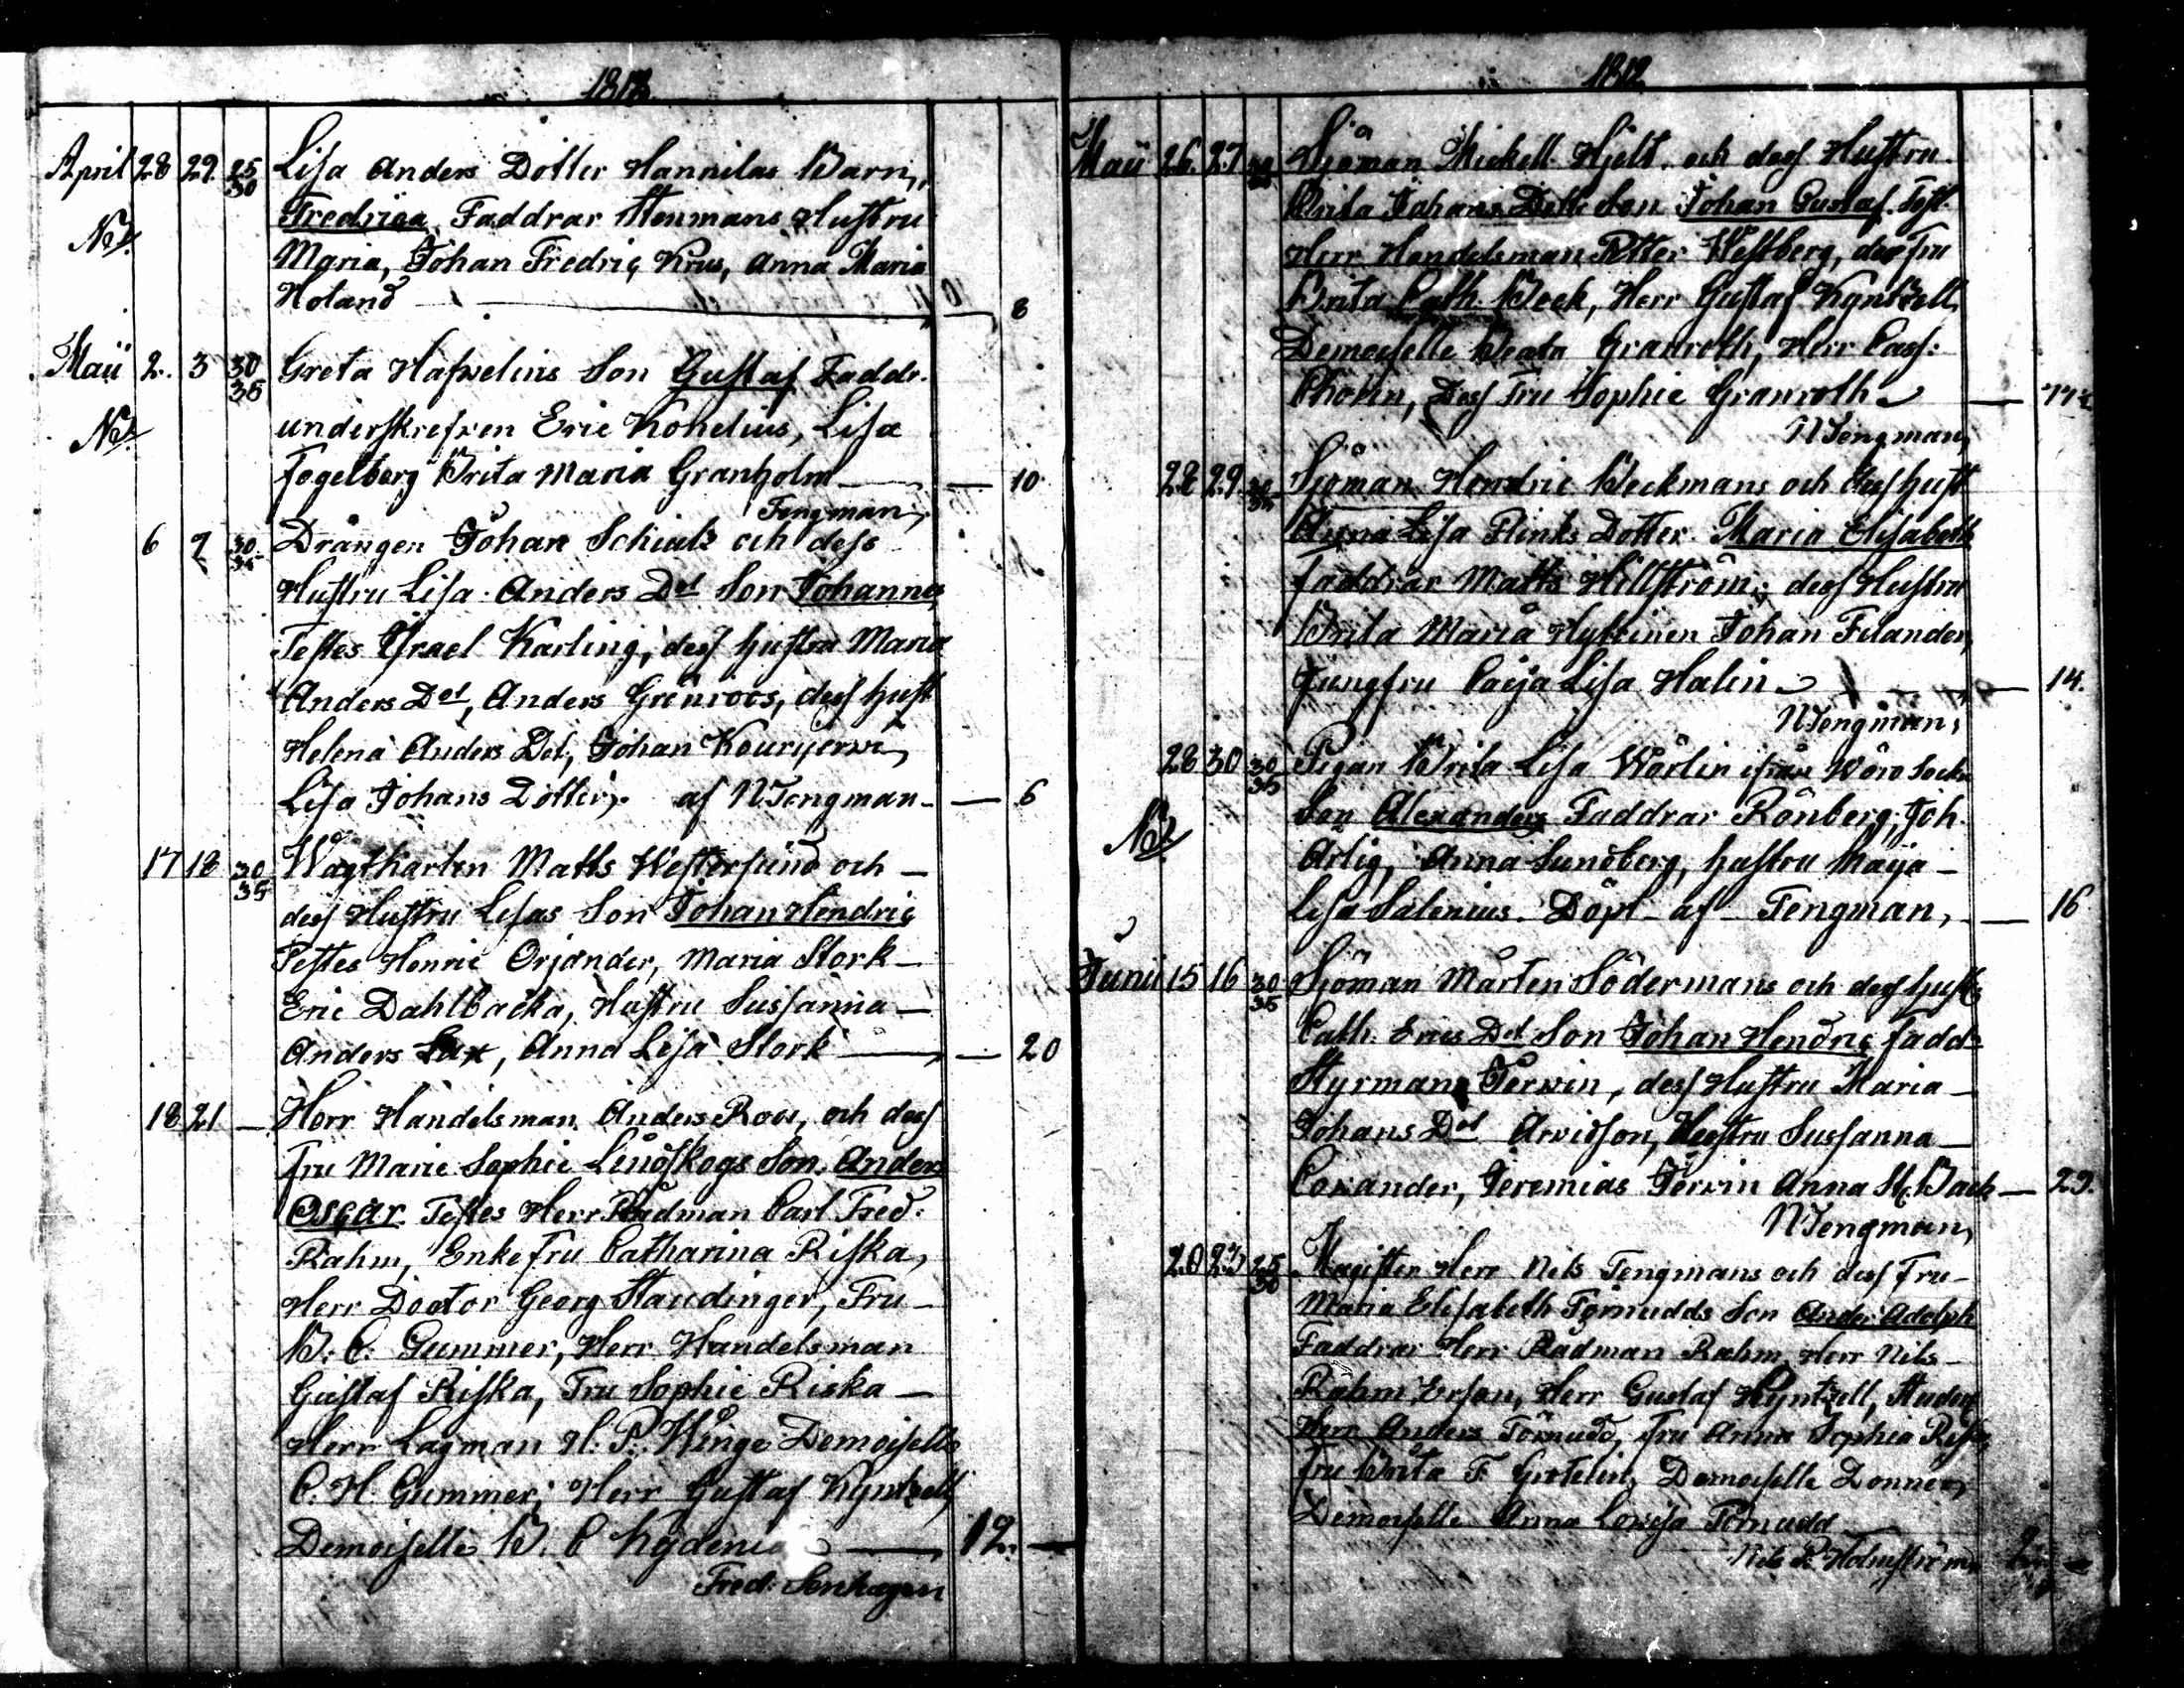 1812
April 28 29 25/30 Lisa Anders Dotter Hannilas Barn,
Fredrica Faddrar Stenmans Hustru
NB.
Maria, Johan Fredric Krus, Anna Maria
Noland — 8
Maii 2. 3 30/35 Greta Hafvelins Son Gustaf Faddr.
underskrefven Eric Kohelius, Lisa
NB.
Fogelberg Brita Maria Granholm — 10.
Tengman,
6 7 30/35 Drängen Johan Schiulz och dess
Hustru Lisa Anders Dot Son Johannes
Testes Israel Karling, dess hustru Maria
Anders Dot, Anders Grenroos, dess hust
Helena Anders Dot, Johan
Lisa Johans Dotter, af NTengman — 6
17 18 30/35 Matts Westersund och —
dess Hustru Lisas Son Johan Hendric
Testes Henric Orjander, Maria Stork —
Eric Dahlbacka, Hustru Sussanna —
Anders Lax, Anna Lisa Stork — 20
18 21 — Herr Handelsman Anders Roos, och dess
Fru Marie Sophie Lindskogs Son, Anders
Oscar. Testes Herr Rådman Carl Fred.
Rahm, Enkefru Catharina Riska,
Herr Doctor Georg Staudinger, Fru —
B. C. Gummer, Herr Handelsman
Gustaf Riska, Fru Sophie Riska —
Herr Lagman H. P. Winge Demoiselle
C. H. Gummer, Herr Gustaf Kyntzell,
Demoiselle B. C — 19. —
Fred. Senhagen
1812
Maii 26. 27 Sjöman Mickell Hjelt och dess Hustru
Brita Johans Dotter Son Johan Gustaf. Test.
Herr Handelsman Petter Westberg, dess Fru
Brita Cath. Beck, Herr Gustaf Kyntzell,
Demoiselle Beata Granroth, Herr Cass:
Chorin, Dess Fru Sophie Granroth —
NTengman,
28 29 30/35 Sjöman Hendric Beckmans och dess hust
Anna Lisa Plinks Dotter Maria Elisabeth
faddrar Matts Hillström, dess Hustru
Brita Maria Johan Filander,
Jungfru Caija Lisa Halin — 14.
NTengman,
28 30 30/35 Pigan Brita Lisa Wörlin ifrån Wörå Sockn
Son Alexander Faddrar Rönberg, Joh.
NB.
Arlig, Anna Sundberg, hustru Maija —
Lisa Salenius. Döpt af Tengman, — 16
Junii 15 16 30/35 Sjöman Mårten Södermans och dess hust
Cath. Erics Dot Son Johan Hendric fadd:
Styrman Jerwin, dess Hustru Maria —
Johans Dot Arvidson, Hustru Sussanna —
Coxander, Jeremias Jerwin Anna St. Back — 29.
NTengman,
20 23 25/30 Magister Herr Nils Tengmans och dess Fru —
Maria Elisabeth Törnudds Son Anders Adolph
Faddrar Herr Rådman Rahm, Herr Nils —
Rahm Erson, Herr Gustaf Kyntzell, Studer
Herr Anders Törnudd, Fru Anna Sophia Riska,
Fru Brita F. Grotelin, Demoiselle Donner,
Demoiselle Anna Lovisa Törnudd
Nils P. Holmström